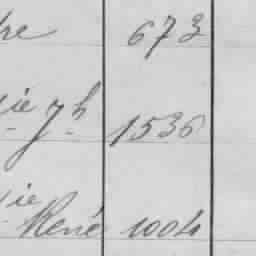 re 673
ie Jh 1536
ie
René 1004